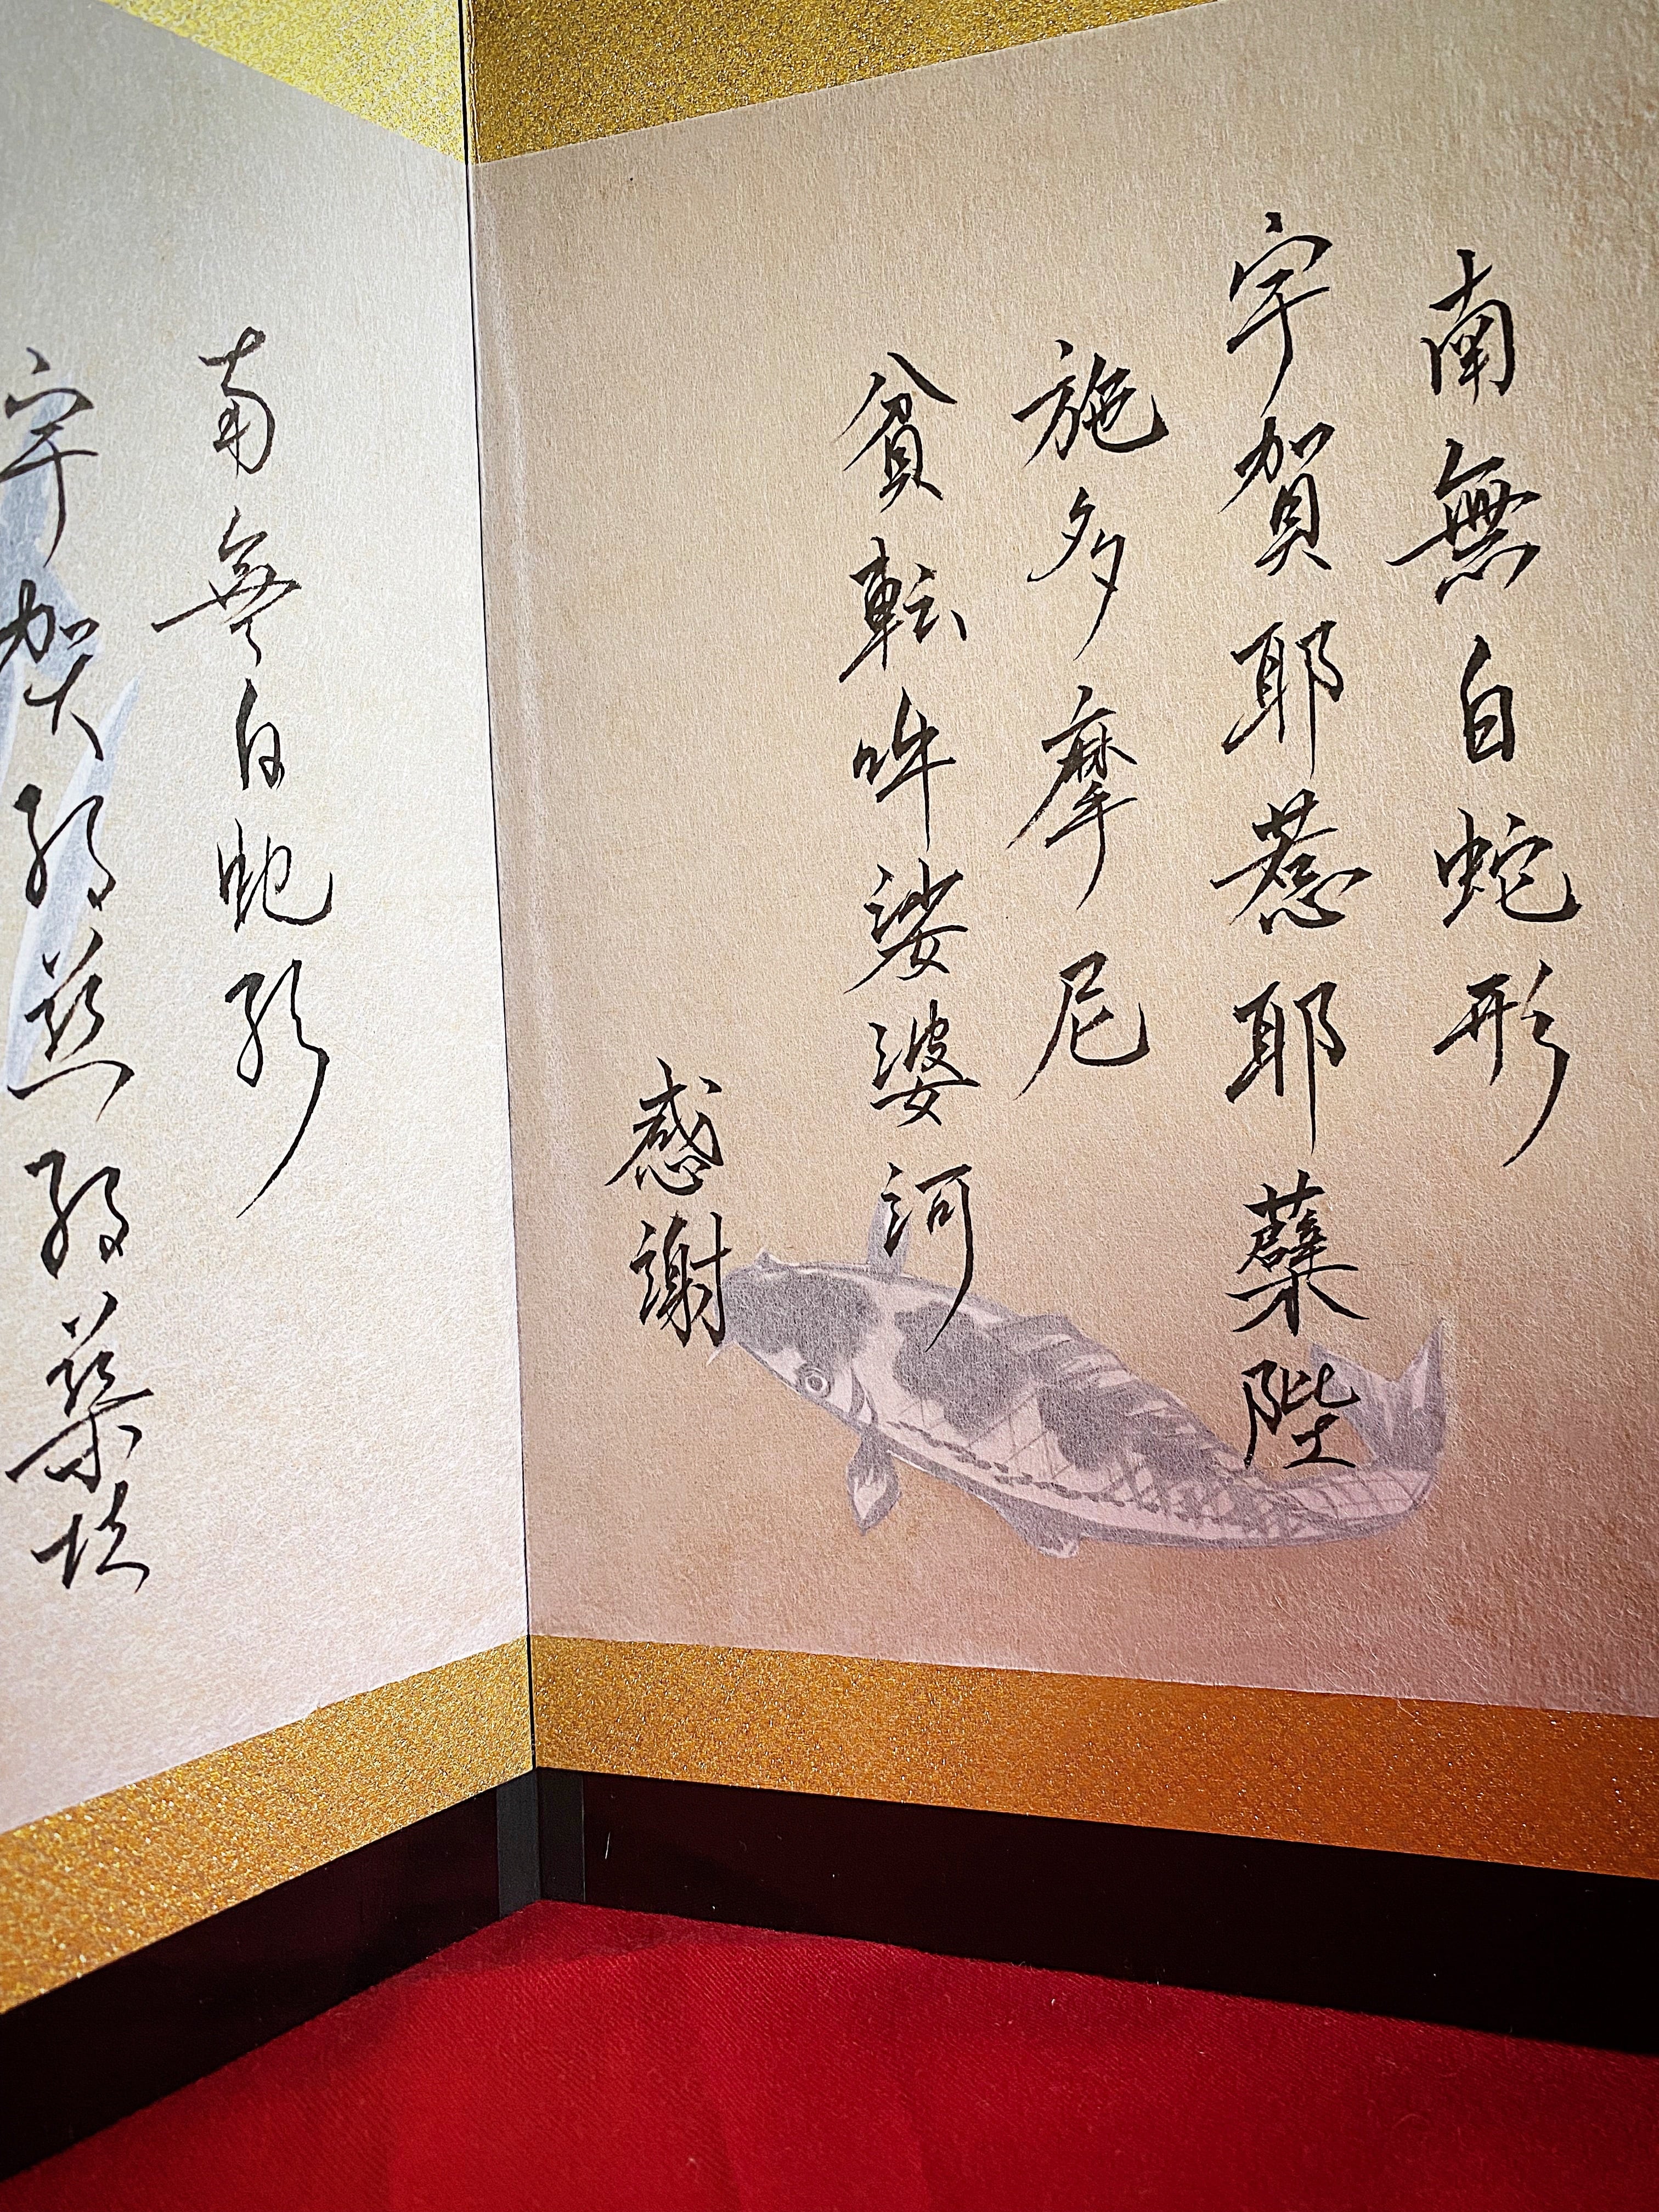 南無白蛇形
宇賀耶惹耶蘗陛
施多摩尼
貧転吽娑婆訶
感謝
南無白蛇形
宇賀耶惹耶蘗陛